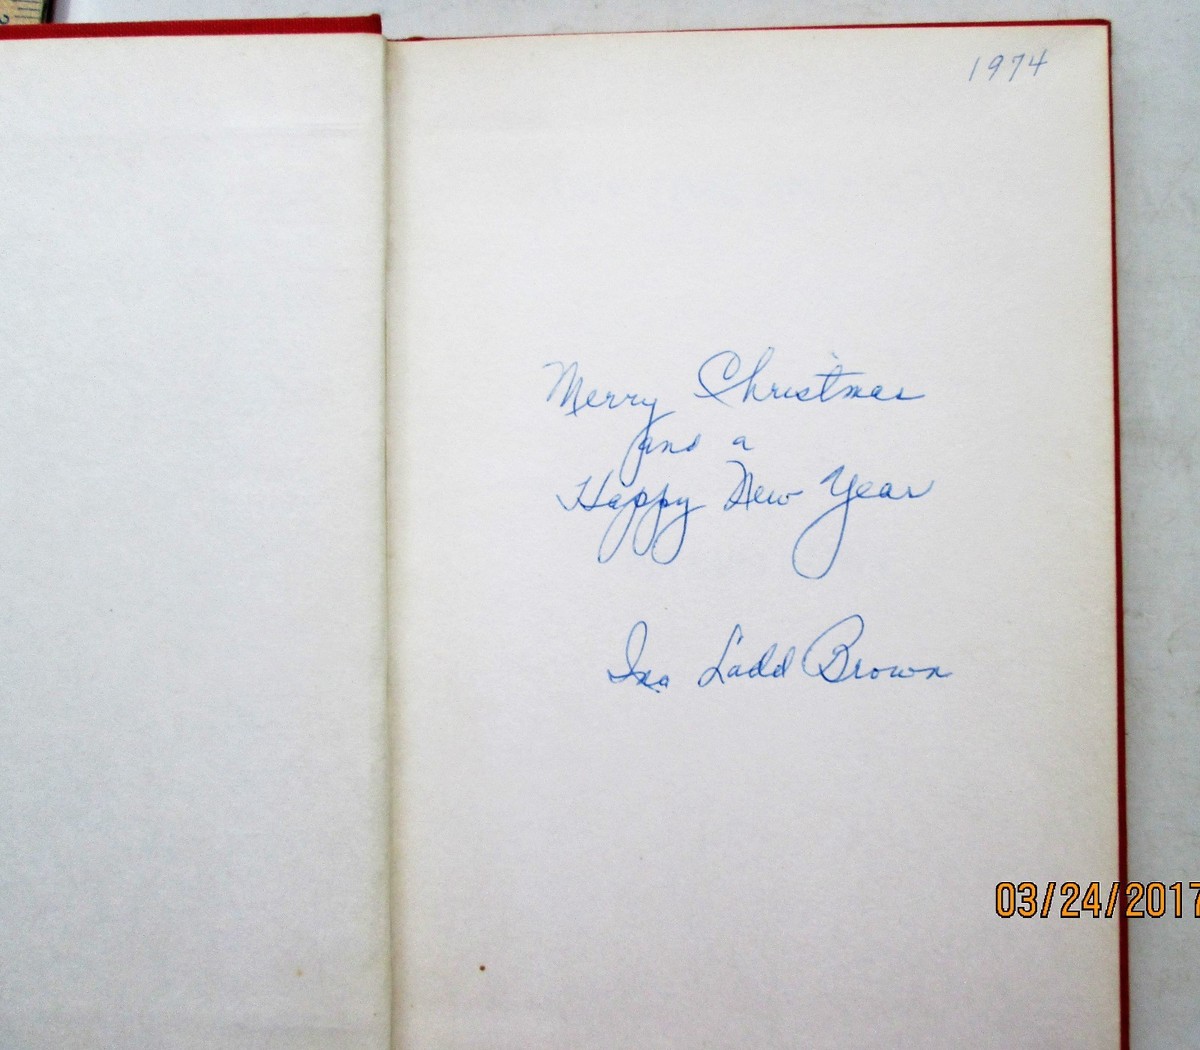 1974
Merry Christmas
and a
Happy New Year
Ina Ladd Brown
03/24/2017